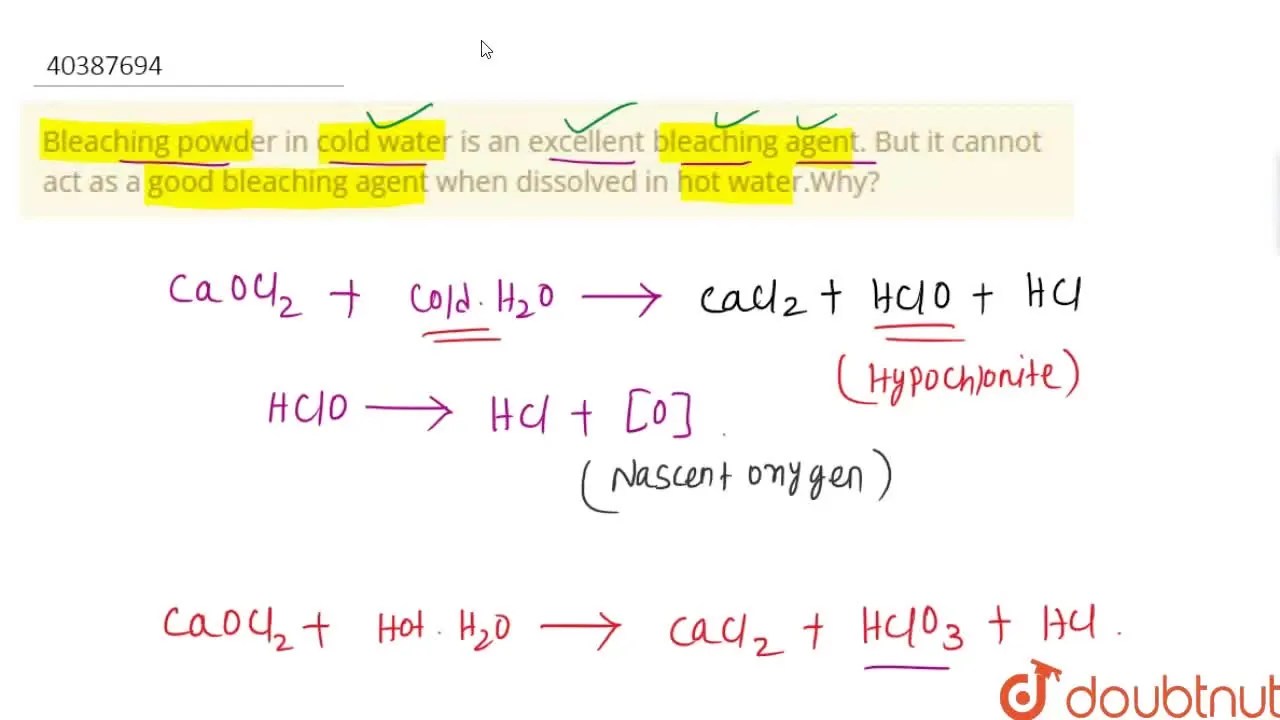 40387694
Bleaching powder in cold water is an excellent bleaching agent. But it cannot
act as a good bleaching agent when dissolved in hot water.Why?
CaOCl₂ + Cold. H₂O ⟶ CaCl₂ + HClO + HCl
(Hypochlonite)
HClO ⟶ HCl + [O]
(Nascent onygen)
CaOCl₂ + Hot. H₂O ⟶ CaCl₂ + HClO₃ + HCl.
doubtnut